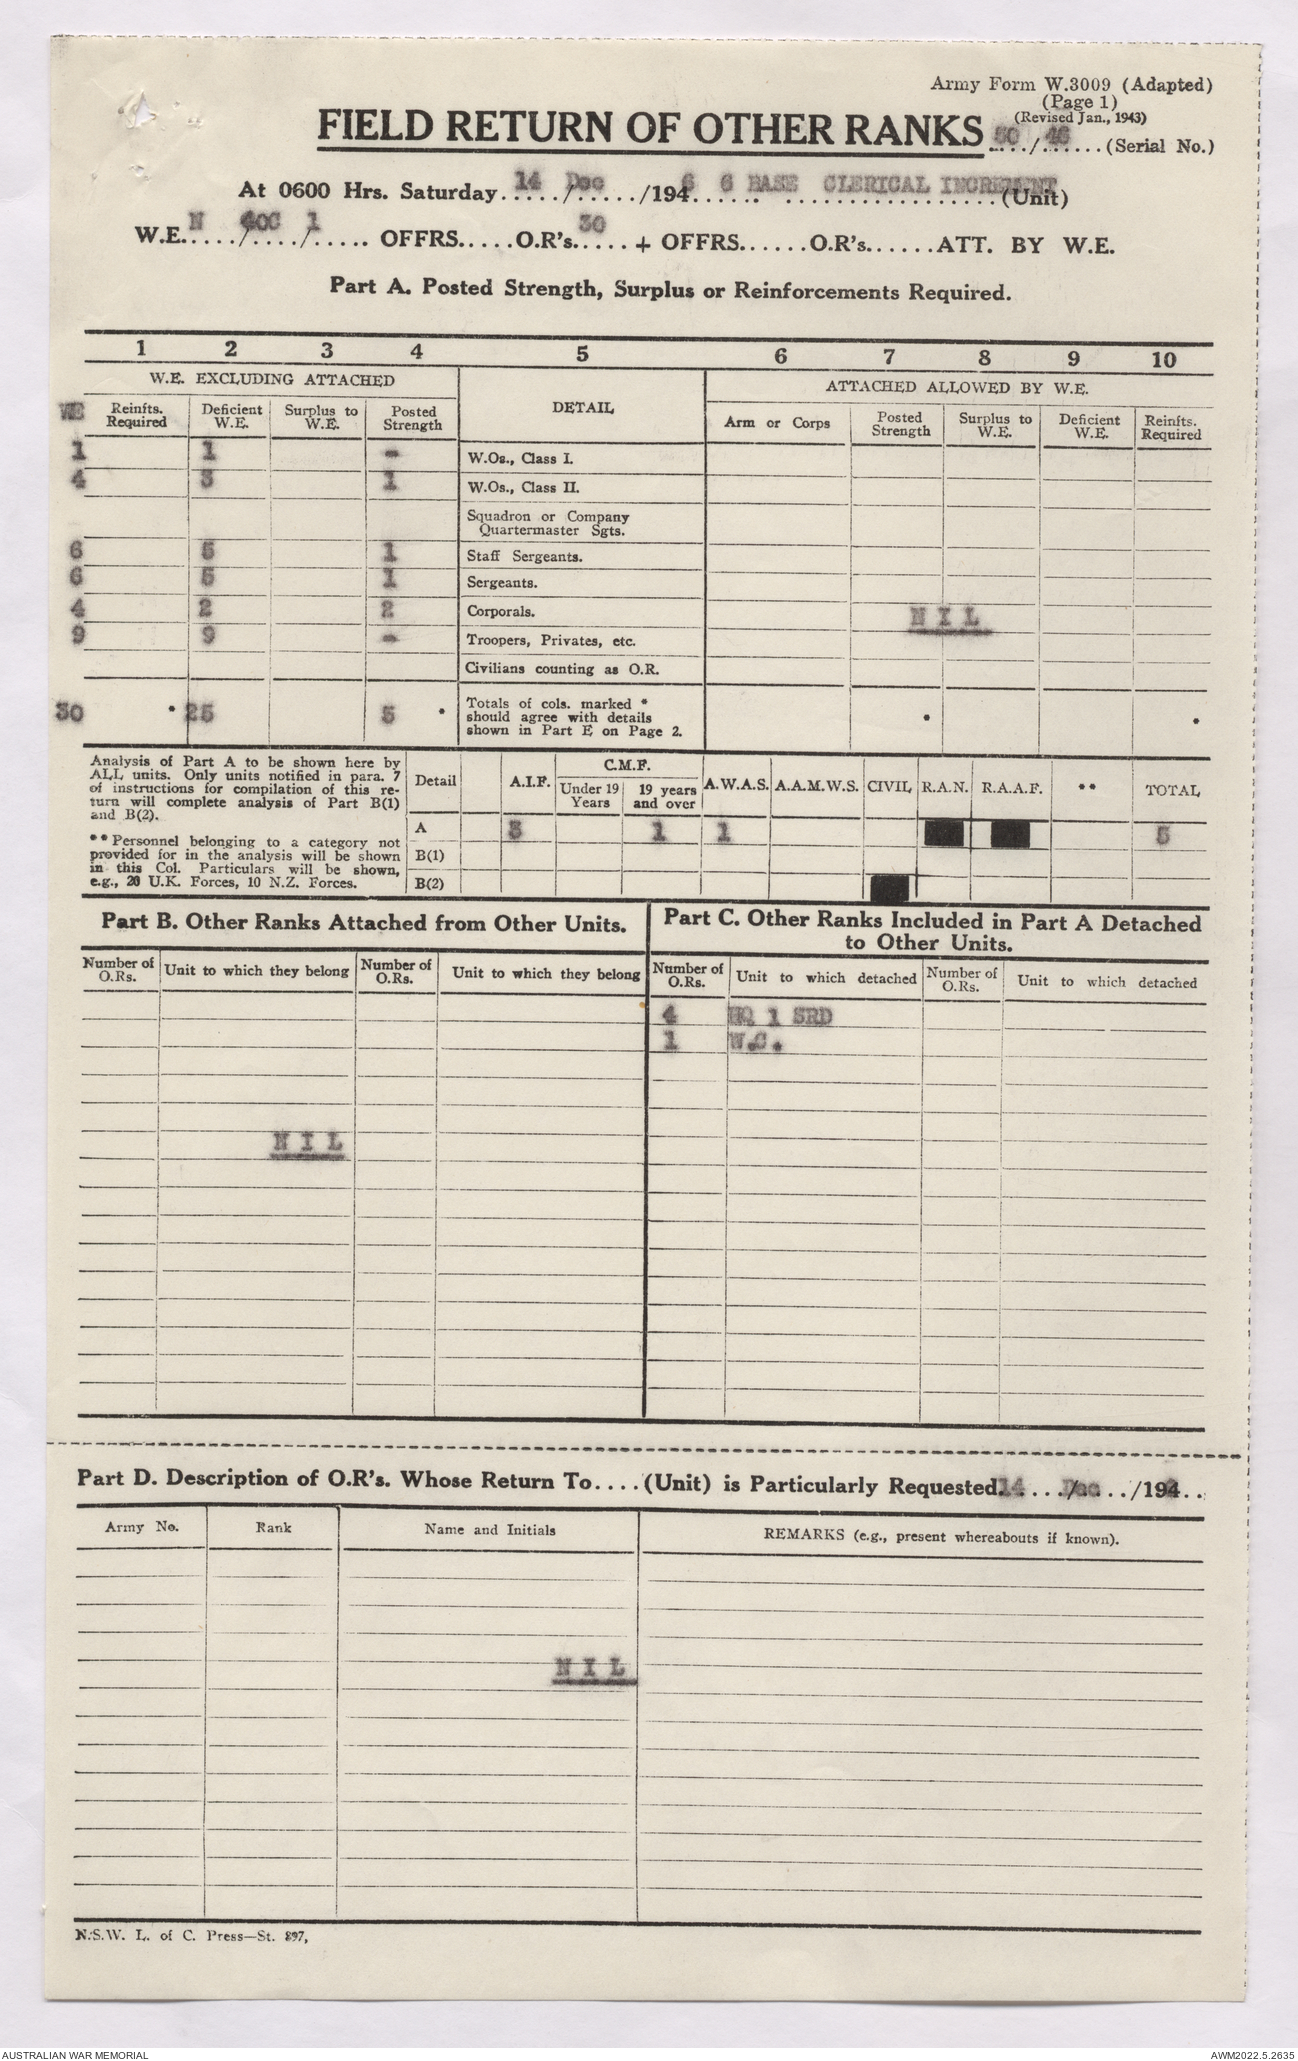 Army Form W.3009 (Adapted)
(Page 1)
(Revised Jan., 1943)
FIELD RETURN OF OTHER RANKS 50/46 (Serial No.)
At 0600 Hrs. Saturday 14 / Dec /1946 6 BASE CLERICAL INCREMENT (Unit)
W.E. N / 40C / 1 OFFRS.....O.R's. 30 + OFFRS......O.R's......ATT. BY W.E.
Part A. Posted Strength, Surplus or Reinforcements Required.
1 2 3 4 5 6 7 8 9 10
W.E. EXCLUDING ATTACHED DETAIL ATTACHED ALLOWED BY W.E.
WE Reinfts. Required Deficient W.E. Surplus to W.E. Posted Strength Arm or Corps Posted Strength Surplus to W.E. Deficient W.E. Reinfts. Required
1 1 - W.Os., Class I.
4 3 1 W.Os., Class II.
Squadron or Company
Quartermaster Sgts.
6 5 1 Staff Sergeants.
6 5 1 Sergeants.
4 2 2 Corporals. NIL
9 9 - Troopers, Privates, etc.
Civilians counting as O.R.
30 * 25 5 * Totals of cols. marked *
should agree with details
shown in Part E on Page 2.
Analysis of Part A to be shown here by
ALL units. Only units notified in para. 7
of instructions for compilation of this re-
turn will complete analysis of Part B(1)
and B(2).
** Personnel belonging to a category not
provided for in the analysis will be shown
in this Col. Particulars will be shown,
e.g., 20 U.K. Forces, 10 N.Z. Forces.
Detail A.I.F. C.M.F. Under 19 Years 19 years and over A.W.A.S. A.A.M.W.S. CIVIL R.A.N. R.A.A.F. ** TOTAL
A 3 1 1 5
B(1)
B(2)
Part B. Other Ranks Attached from Other Units.
Number of O.Rs. Unit to which they belong Number of O.Rs. Unit to which they belong
NIL
Part C. Other Ranks Included in Part A Detached
to Other Units.
Number of O.Rs. Unit to which detached Number of O.Rs. Unit to which detached
4 HQ 1 SRD
1 W.C.
Part D. Description of O.R's. Whose Return To....(Unit) is Particularly Requested. 14 / Dec /194
Army No. Rank Name and Initials REMARKS (e.g., present whereabouts if known).
NIL
N.S.W. L. of C. Press—St. 897,
AUSTRALIAN WAR MEMORIAL AWM2022.5.2635